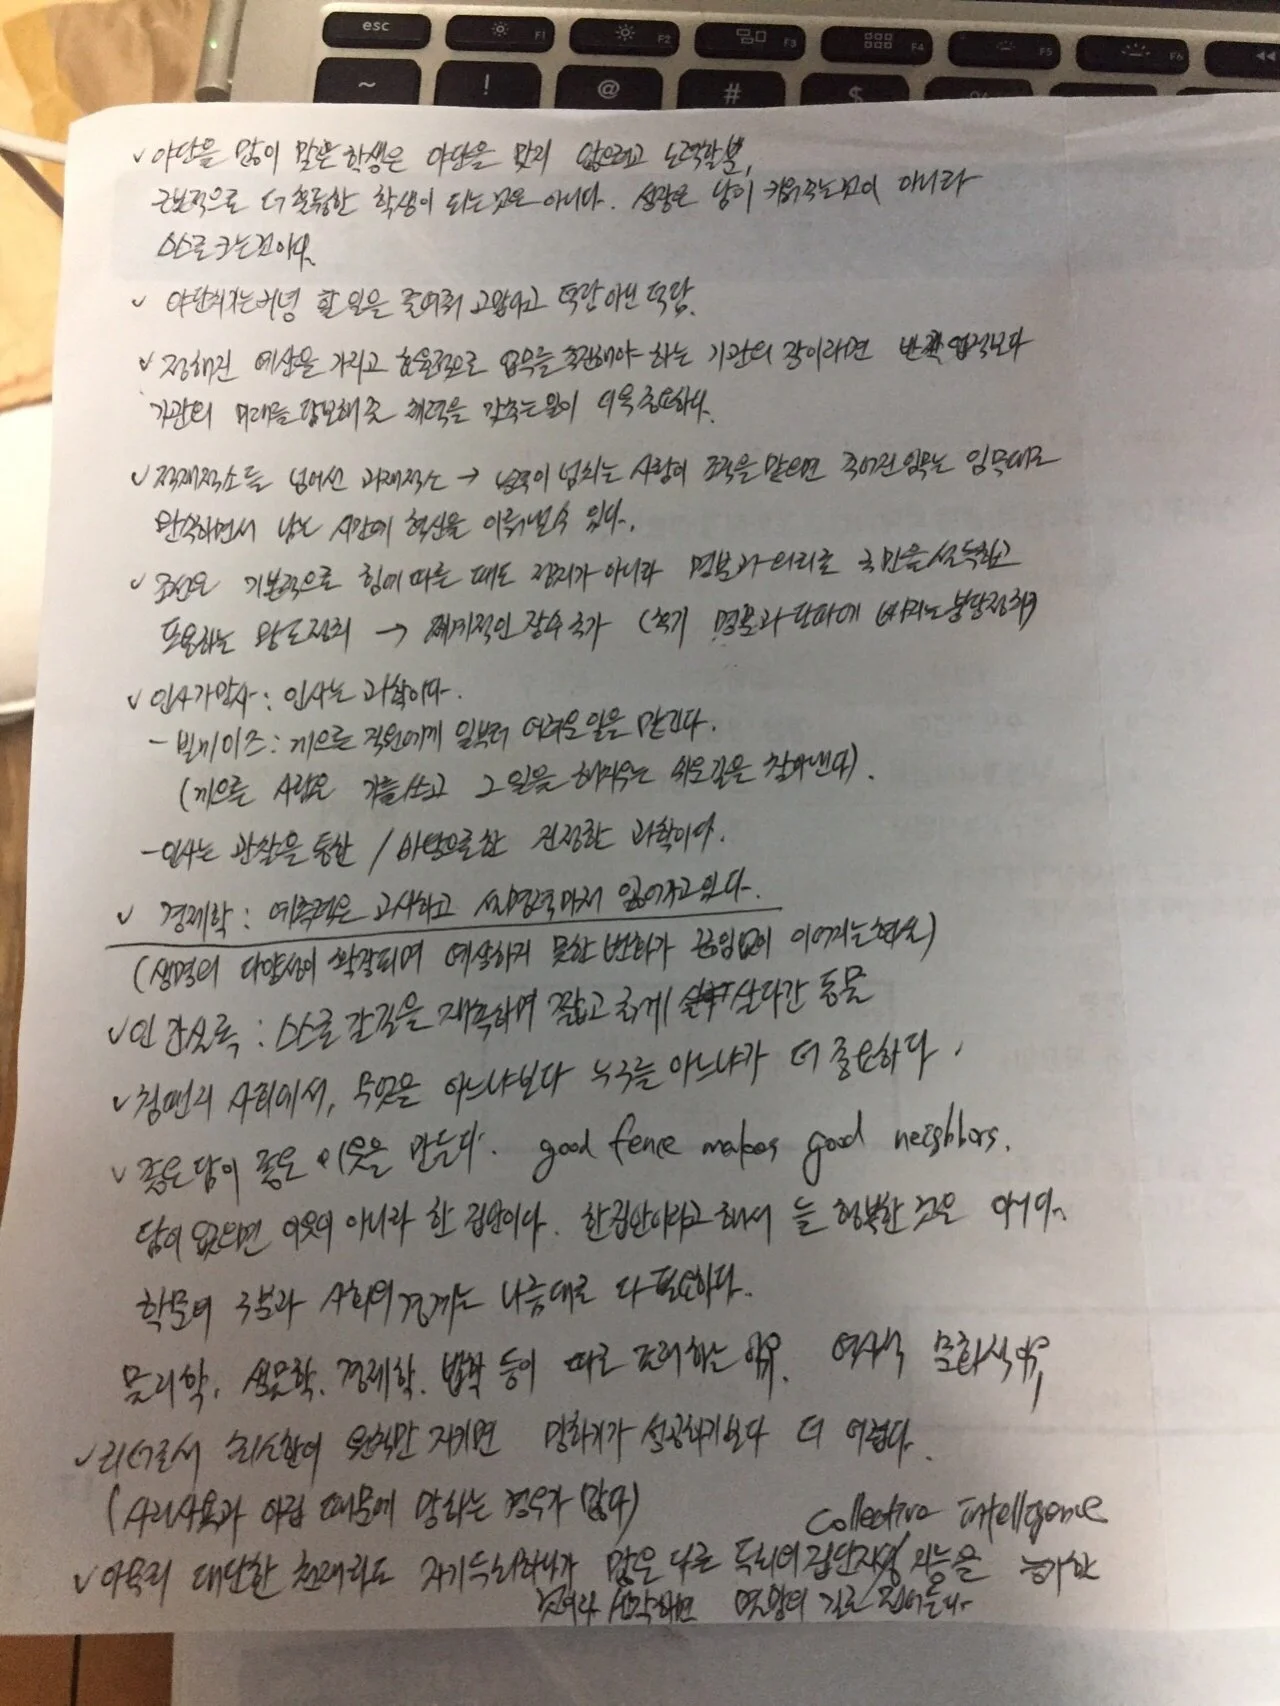 esc F1 F2 F3 F4 F5 F6
~ ! @ # $
✓ 야단을 많이 맞은 학생은 야단을 맞지 않으려고 노력할 뿐,
근본적으로 더 훌륭한 학생이 되는 것은 아니다. 성장은 남이 키워주는 것이 아니라
스스로 크는 것이다.
✓ 야단치기는커녕 할 일을 줄여줘 고맙다고 덕담 아닌 덕담.
✓ 정해진 예산을 가지고 효율적으로 업무를 추진해야 하는 기관의 장이라면 업적보다
기관의 미래를 담보해 줄 체력을 갖추는 일이 더욱 중요하다.
✓ 적재적소를 넘어선 과재적소 → 능력이 넘치는 사람이 조직을 맡으면 주어진 임무는 임무대로
완수하면서 남는 시간에 혁신을 이뤄낼 수 있다.
✓ 조선은 기본적으로 힘에 따른 패도 정치가 아니라 명분과 의리로 국민을 설득하고
포용하는 왕도정치 → 세계적인 장수 국가 (후기 명분과 당파에 빠지는 붕당정치)
✓ 인사가 만사 : 인사는 과학이다.
- 빌게이츠 : 게으른 직원에게 일부러 어려운 일을 맡긴다.
(게으른 사람은 기를 쓰고 그 일을 해치우는 쉬운 길을 찾아낸다).
- 인사는 관찰을 통한 / 바탕으로한 진정한 과학이다.
✓ 경제학 : 예측력은 고사하고 설명력마저 잃어가고 있다.
(생명의 다양성이 확장되며 예상하지 못한 변화가 끊임없이 이어지는 현실)
✓ 인간실록 : 스스로 갈 길을 재촉하며 짧고 굵게 살다간 동물
✓ 침팬지 사회에서, 무엇을 아느냐보다 누구를 아느냐가 더 중요하다.
✓ 좋은 담이 좋은 이웃을 만든다. good fence makes good neighbors.
담이 없으면 이웃이 아니라 한 집안이다. 한집안이라고 해서 늘 행복한 것은 아니다.
학문의 구분과 사회의 경계는 나름대로 다 필요하다.
물리학, 생물학, 경제학, 법학 등이 따로 존재하는 이유.
✓ 리더로서 최소한의 원칙만 지키면 망하기가 성공하기보다 더 어렵다.
(사리사욕과 아집 때문에 망하는 경우가 많다)
Collective Intelligence
✓ 아무리 대단한 천재라도 자기 두뇌 하나가 많은 다른 두뇌의 집단지성/지능을 능가한
것이라 생각하면 멸망의 길로 접어든다.